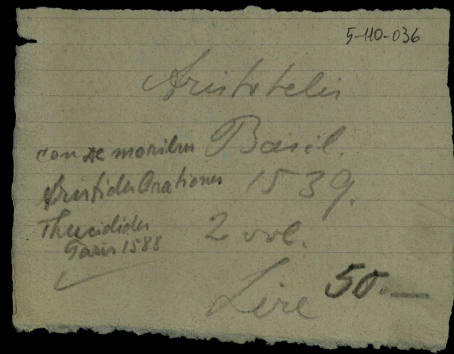 5-110-036
Aristotelis
con De moribus Basil.
Aristides Orationes 1539.
Thucidides 2 vol.
Paris 1588
Lire 50.—